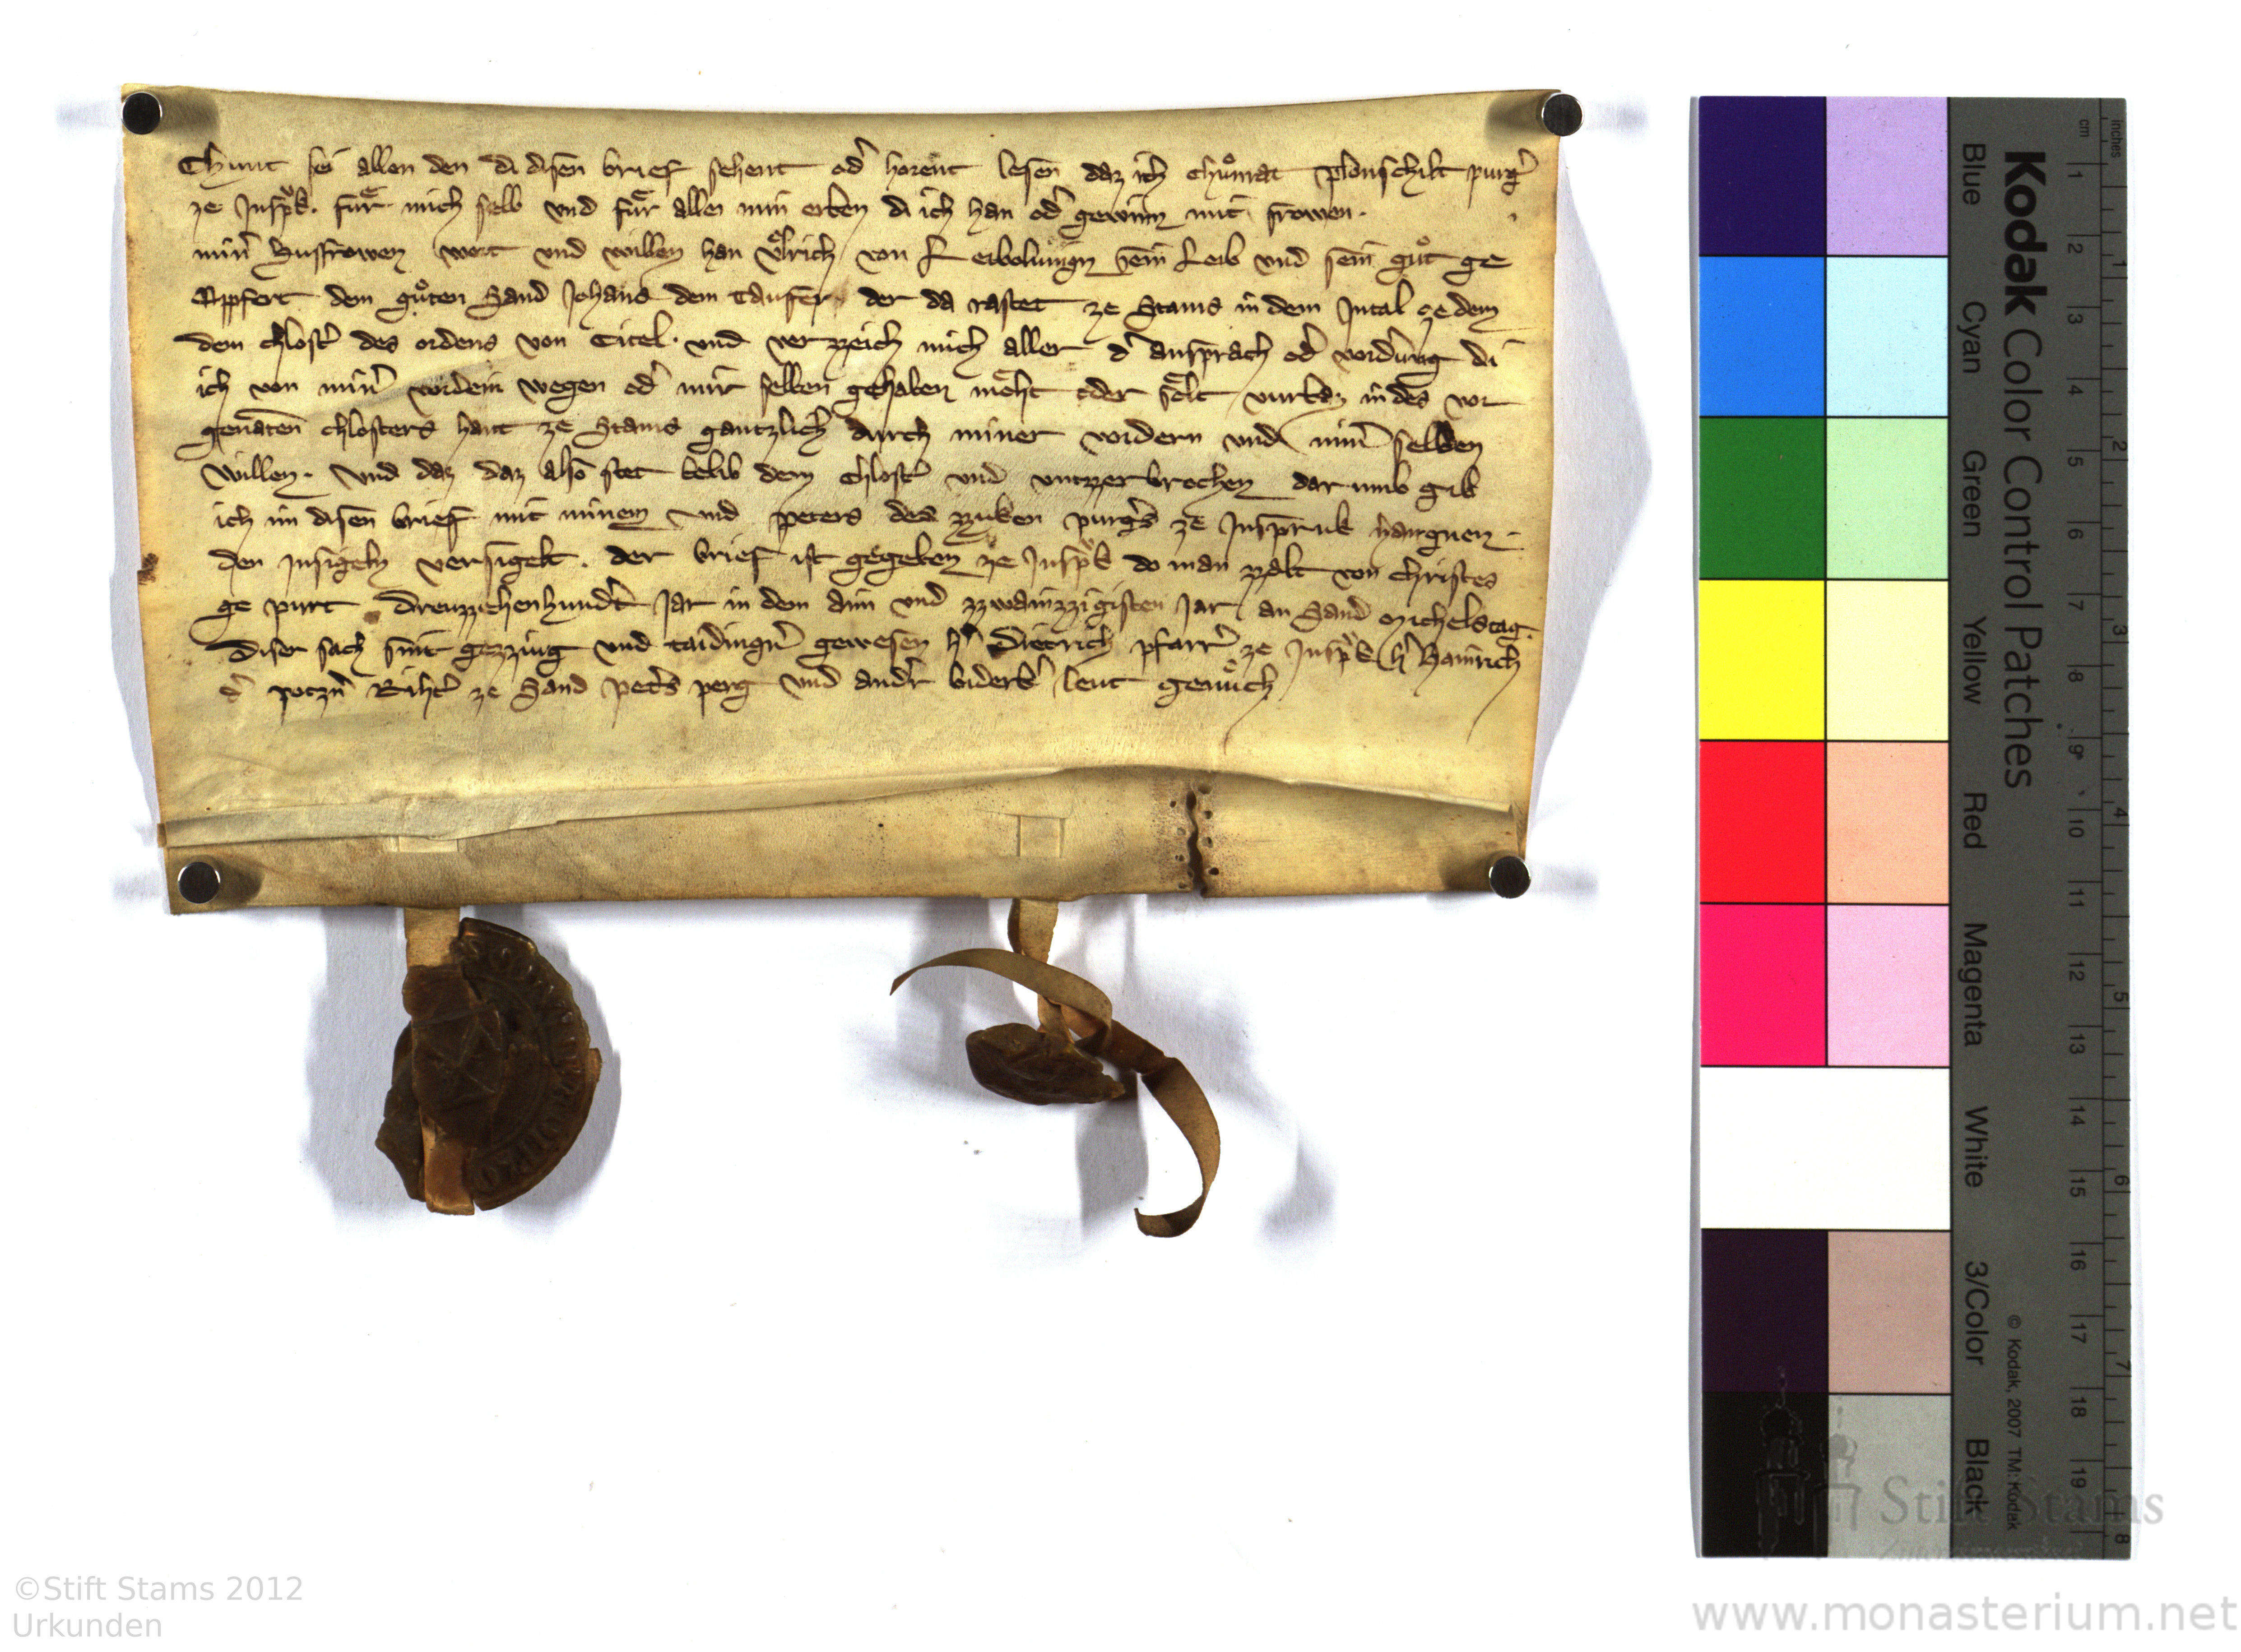 Chunt sei allen den di disen brief sehent od͛ horent lesen daz ich Chuͦnrat Plonschilt purg͛
ze Insp͛k. fuͤr mich selb vnd fuͤr allen min erben di ich han od͛ gewinn mit frowen.
min͛ Husfrowen wort vnd willen han Vͦlrich von Leibolungn sein Leib vnd sein guͦt ge
Oppfert dem guͦten Sand Johans dem Taufer der da rastet ze Stams in dem Intal ze dem
dem chlost͛ des ordens von Citel. vnd verzzeich mich aller d͛ ansprach od͛ vordrung di
ich von min͛ vordern wegen od͛ mir selben gehaben moͤht oder soͤlt in des vor
genaten chlosters hant ze Stams gantzlich durch miner vordern vnd min͛ selben
willen. Vnd daz daz also stet belib dem Chlost͛ vnd vntzzerbrochen dar umb gib
ich im disen brief mit minem vnd peters des purg͛s ze Inspruk hangnen
den Insigeln versigelt. der brief ist gegeben ze Insp͛k do man zzalt von Christes
ge purt Dreuzzehenhund͛t Jar in dem ain vnd zzwainzzigisten Jar an Sand Michelstag.
diser sach sint gezzeug vnd taidingn͛ gewesen h͛ Dietrich pfarr͛ ze Insp͛k h͛ Hainrich
d͛ potzn͛ Riht͛ ze Sand pet͛s perg vnd and͛r biderb͛ leut genuͤch
Kodak Color Control Patches
Blue Cyan Green Yellow Red Magenta White 3/Color Black
© Kodak, 2007 TM: Kodak
inches 1 2 3 4 5 6 7 8
cm 1 2 3 4 5 6 7 8 9 10 11 12 13 14 15 16 17 18 19
Stift Stams
©Stift Stams 2012
Urkunden
www.monasterium.net